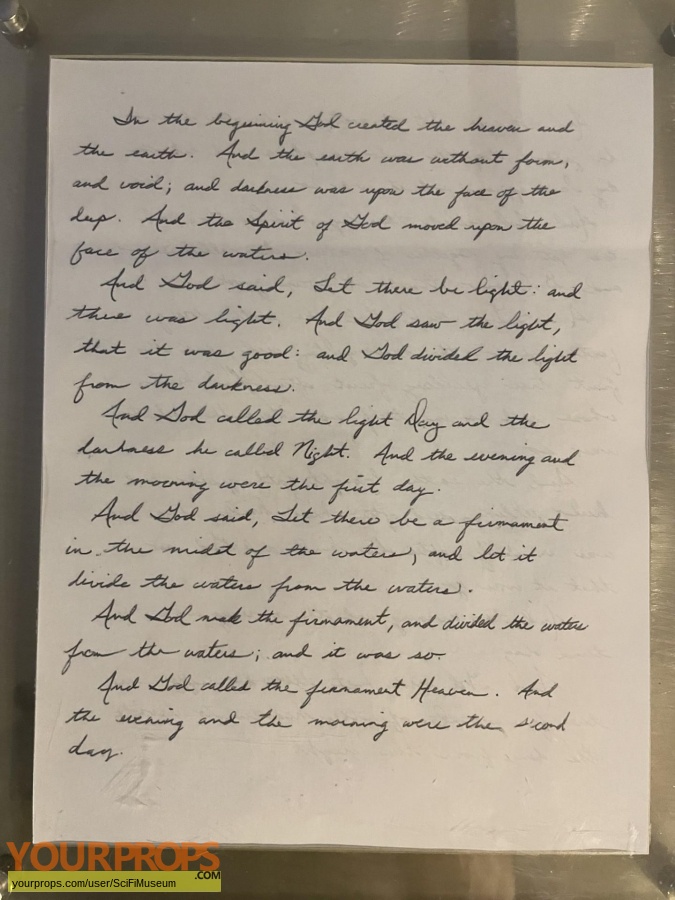 In the beginning God created the heaven and
the earth. And the earth was without form,
and void; and darkness was upon the face of the
deep. And the Spirit of God moved upon the
face of the waters.
And God said, Let there be light: and
there was light. And God saw the light,
that it was good: and God divided the light
from the darkness.
And God called the light Day and the
darkness he called Night. And the evening and
the morning were the first day.
And God said, Let there be a firmament
in the midst of the waters, and let it
divide the waters from the waters.
And God made the firmament, and divided the waters
from the waters; and it was so.
And God called the firmament Heaven. And
the evening and the morning were the second
day.
YOURPROPS.COM
yourprops.com/user/SciFiMuseum